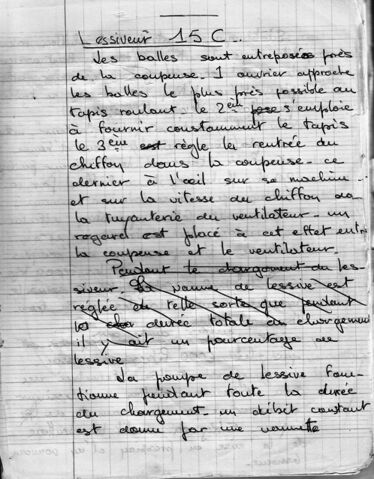 Lessiveur 15 C.
Les balles sont entreposées près
de la coupeuse. 1 ouvrier approche
les balles le plus près possible du
tapis roulant. le 2ème s'emploie
à fournir constamment le tapis
le 3ème est règle la rentrée du
chiffon dans la coupeuse. ce
dernier à l'œil sur sa machine
et sur la vitesse du chiffon dans
la tuyauterie du ventilateur. un
regard est placé à cet effet entre
la coupeuse et le ventilateur.
Pendant le chargement du les-
siveur. La vanne de lessive est
réglée de telle sorte que pendant
la durée totale du chargement
il y ait un pourcentage de
lessive
La pompe de lessive fonc-
tionne pendant toute la durée
du chargement. un débit constant
est donné par une vannette